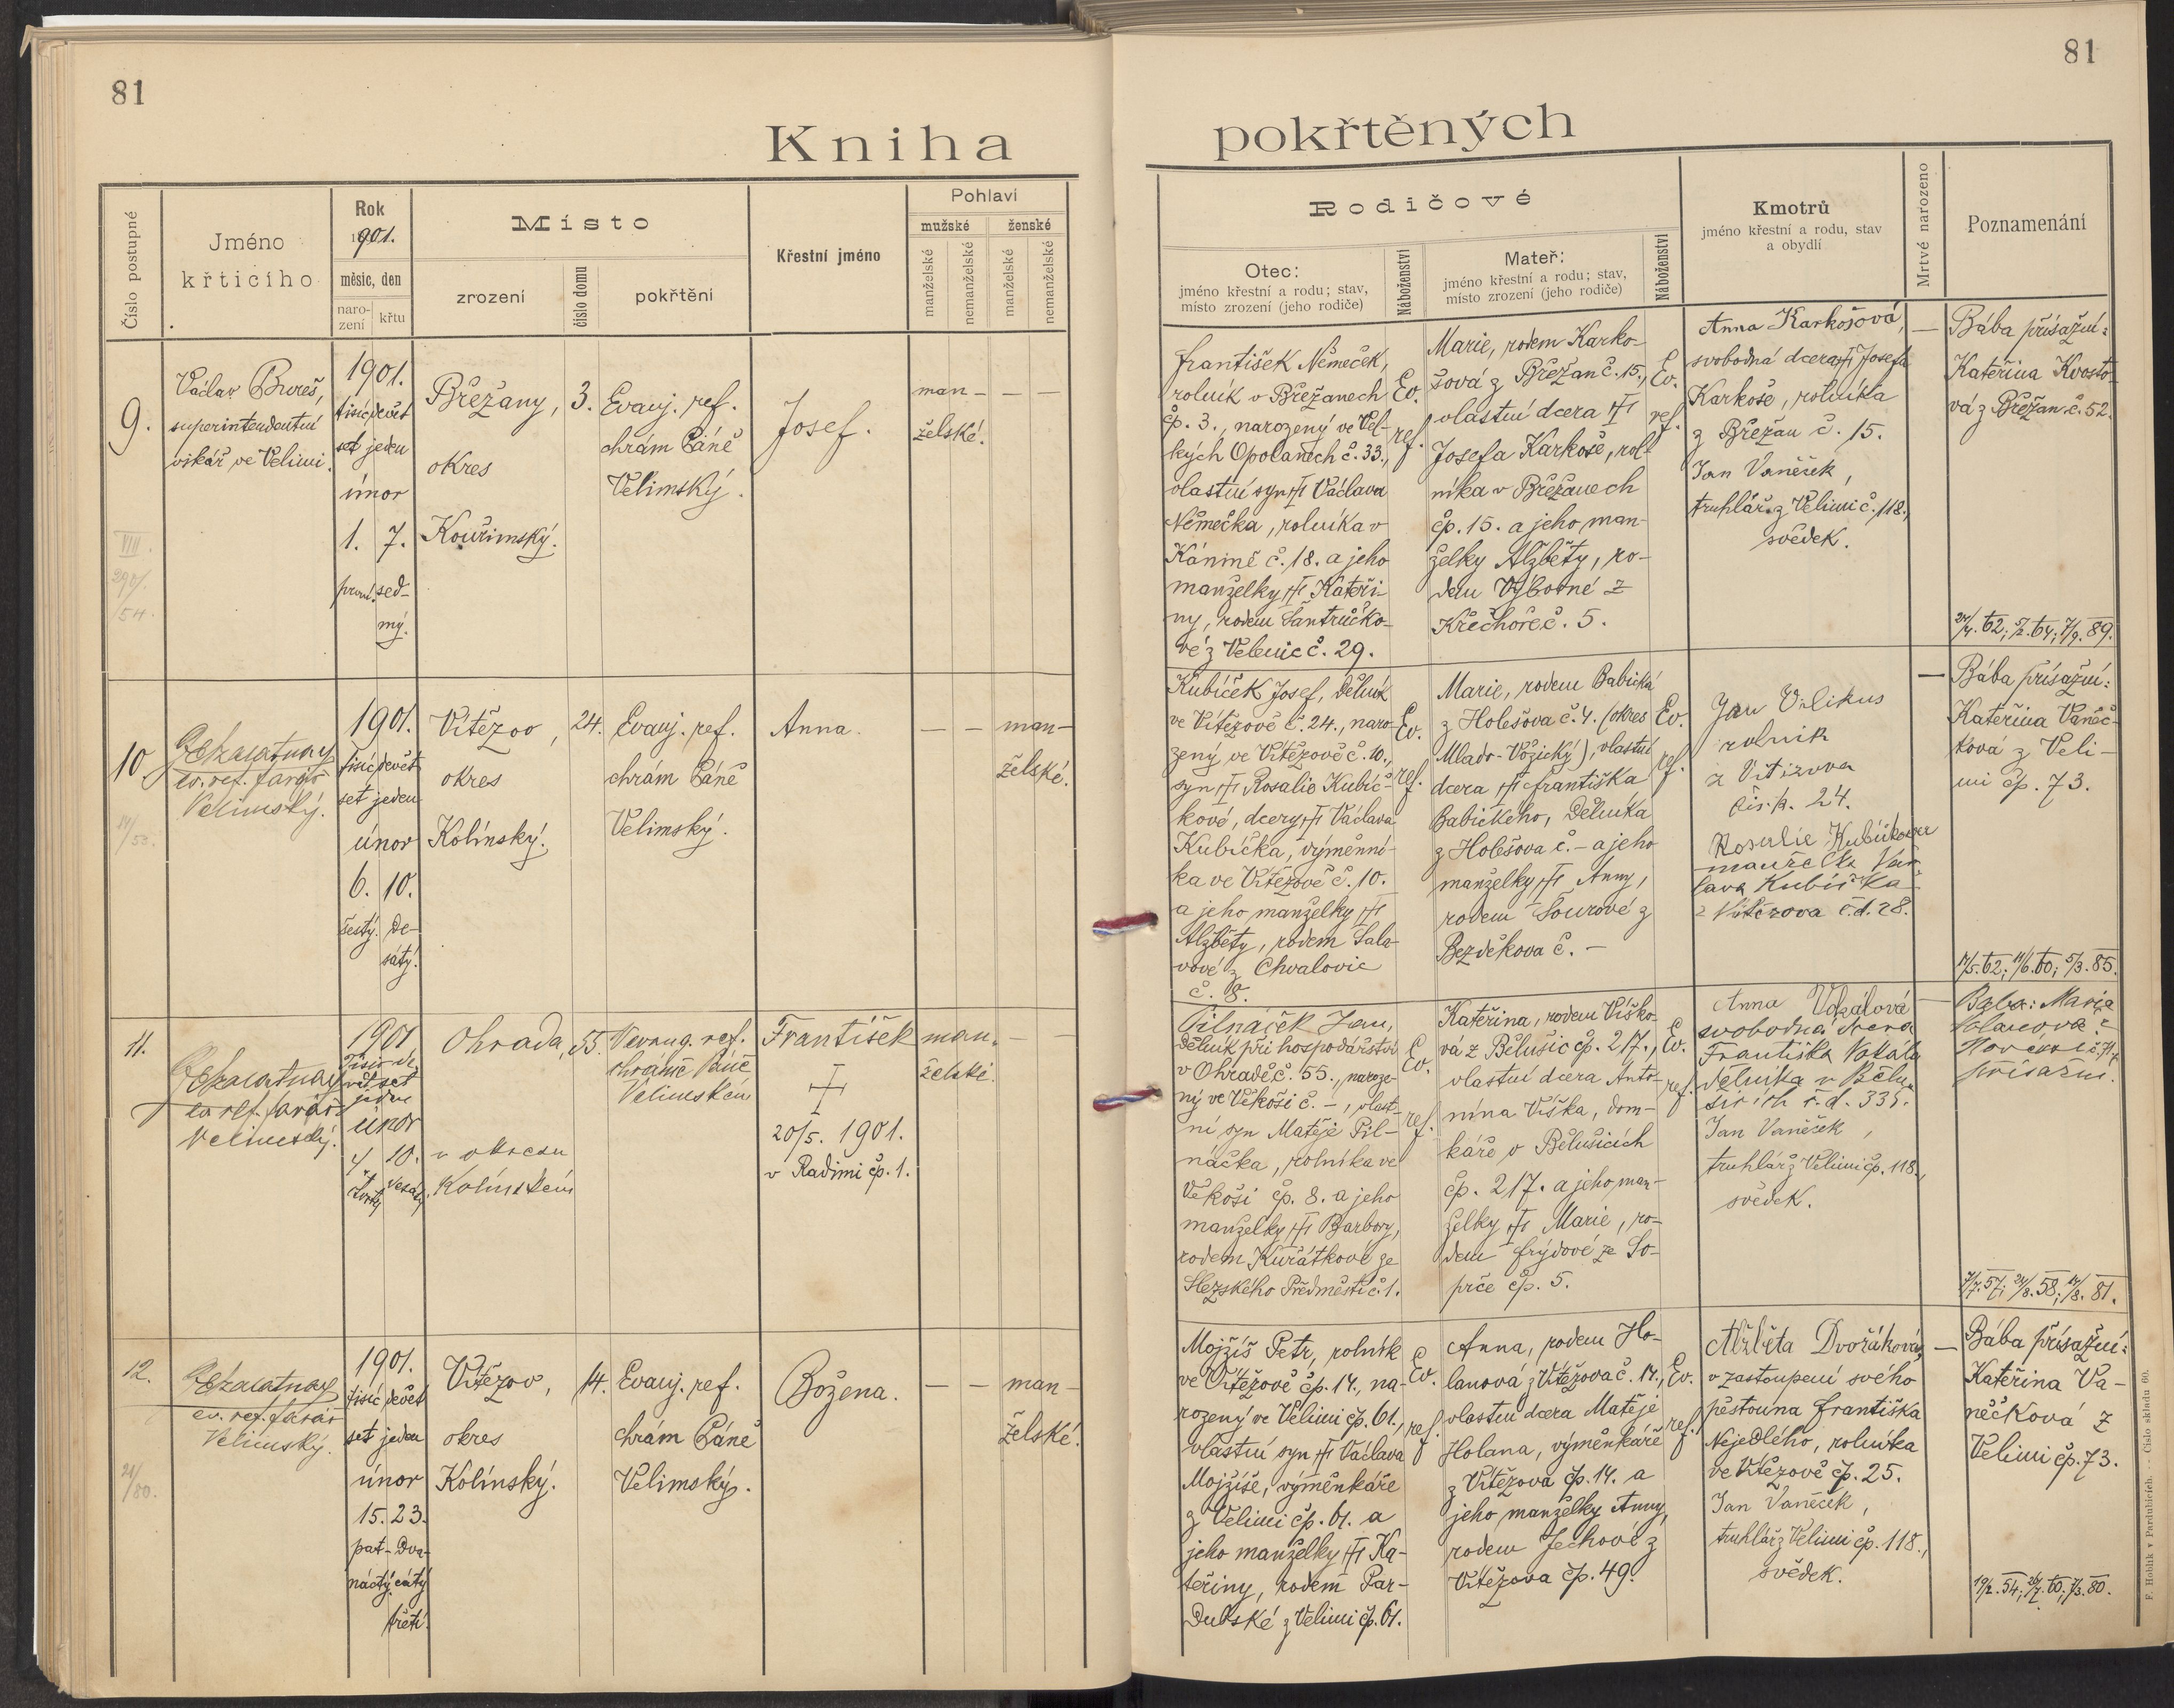 81
Kniha
Číslo postupné
Jméno
křticího
Rok
1901.
měsíc, den
naro-
zení
křtu
Místo
zrození
číslo domu
pokřtění
Křestní jméno
Pohlaví
mužské
ženské
manželské
nemanželské
manželské
nemanželské
9.
Václav Bureš,
superintendentní
vikář ve Velimi.
1901.
tisíc devět
set jeden
únor
1. 7.
první. sed-
mý.
Břežany, 3.
okres
Kouřimský.
Evanj. ref.
chrám Páně
Velimský.
Josef.
man-
želské.
— —
VIII.
54.
10
ev. ref. farář
Velimský.
1901.
tisíc devět
set jeden
únor
6. 10.
šestý. de-
sátý.
Vítězov, 24.
okres
Kolínský.
Evanj. ref.
chrám Páně
Velimský.
Anna.
— — man-
želské.
11.
ev. ref. farář
Velimský.
1901
Tisíc de-
vět set
jeden
únor
4. 10.
Ohrada, 55.
v okresu
Kolínském
V evang. ref.
chrámě Páně
Velimském
František
20/5. 1901.
v Radimi čp. 1.
man-
želské.
— —
12.
ev. ref. farář
Velimský.
21/80.
1901.
tisíc devět
set jeden
únor
15. 23.
pat- dva-
náctý. cátý
třetí.
Vítězov, 14.
okres
Kolínský.
Evanj. ref.
chrám Páně
Velimský.
Božena.
— — man-
želské.
81
pokřtěných
Rodičové
Otec:
jméno křestní a rodu; stav,
místo zrození (jeho rodiče)
Náboženství
Mateř:
jméno křestní a rodu; stav,
místo zrození (jeho rodiče)
Náboženství
Kmotrů
jméno křestní a rodu, stav
a obydlí
Mrtvé narozeno
Poznamenání
František Němeček,
rolník v Břežanech
čp. 3., narozený ve Vel-
kých Opolanech č. 33.,
vlastní syn Václava
Němečka, rolníka v
Kánině č. 18. a jeho
manželky Kateři-
ny, rodem Šantrůčko-
vé z Velenic č. 29.
Ev.
ref.
Marie, rodem Karko-
šová z Břežan č. 15.,
vlastní dcera
Josefa Karkoše, rol-
níka v Břežanech
čp. 15. a jeho man-
želky Alžběty, ro-
dem Výborné z
Křečhoře č. 5.
Ev.
ref.
Anna Karkošová,
svobodná dcera Josefa
Karkoše, rolníka
z Břežan č. 15.
Jan Vaněček,
truhlář z Velimi č. 118.,
svědek.
—
Bába přísažní:
Kateřina Kvasto-
vá z Břežan č. 52.
24/4. 62; 5/2. 64; 7/9. 89.
Kubíček Josef, dělník
ve Vítězově č. 24., naro-
zený ve Vítězově č. 10.,
syn Rosalie Kubíč-
kové, dcery Václava
Kubíčka, výměnní-
ka ve Vítězově č. 10.
a jeho manželky
Alžběty, rodem Sala-
vové z Chvalovic
č. 8.
Ev.
ref.
Marie, rodem Babická
z Holešova č. 4. (okres
Mlado-Vožický), vlastní
dcera Františka
Babického, dělníka
z Holešova č. — a jeho
manželky Anny,
rodem Šourové z
Bezděkova č. —
Ev.
ref.
Jan Vilikus
rolník
z Vitězova
čís. p. 24.
Rosalie Kubíčkova
manželka Vác-
lava Kubíčka
z Vítězova č. d. 28.
—
Bába přísažní:
Kateřina Vaněč-
ková z Veli-
mi čp. 73.
17/5. 62; 11/6. 60; 5/3. 85.
Pilnáček Jan,
dělník při hospodářství
v Ohradě č. 55., naroze-
ný ve Věkoši č. —, vlast-
ní syn Matěje Pil-
náčka, rolníka ve
Věkoši čp. 8. a jeho
manželky Barbory,
rodem Kuřátkové ze
Slezského Předměstí č. 1.
Ev.
ref.
Kateřina, rodem Víško-
vá z Bělušic čp. 217.,
vlastní dcera Anto-
nína Víška, dom-
káře v Bělušicích
čp. 217. a jeho man-
želky Marie, ro-
dem Frýdové ze So-
prče čp. 5.
Ev.
ref.
Anna Vokálová
svobodná dcera
Františka Vokála
dělníka v Bělu-
šicích č. d. 335.
Jan Vaněček,
truhlář z Velimi čp. 118.,
svědek.
—
Baba: Marie
přísažní.
7/7. 57; 24/8. 58; 14/8. 81.
Mojžíš Petr, rolník
ve Vítězově čp. 14., na-
rozený ve Velimi čp. 61.,
vlastní syn Václava
Mojžíše, výměnkáře
z Velimi čp. 61. a
jeho manželky Ka-
teřiny, rodem Par-
dubské z Velimi čp. 61.
Ev.
ref.
Anna, rodem Ho-
lanová z Vítězova č. 14.,
vlastní dcera Matěje
Holana, výměnkáře
z Vítězova čp. 14. a
jeho manželky Anny,
rodem Jechové z
Vítězova čp. 49.
Ev.
ref.
Alžběta Dvořáková,
v zastoupení svého
pěstouna Františka
Nejedlého, rolníka
ve Vítězově čp. 25.
Jan Vaněček,
truhlář z Velimi čp. 118.,
svědek.
—
Bába přísažní:
Kateřina Va-
něčková z
Velimi čp. 73.
19/2. 54; 26/7. 60; 7/3. 80.
F. Hoblík v Pardubicích. — Číslo skladu 60.